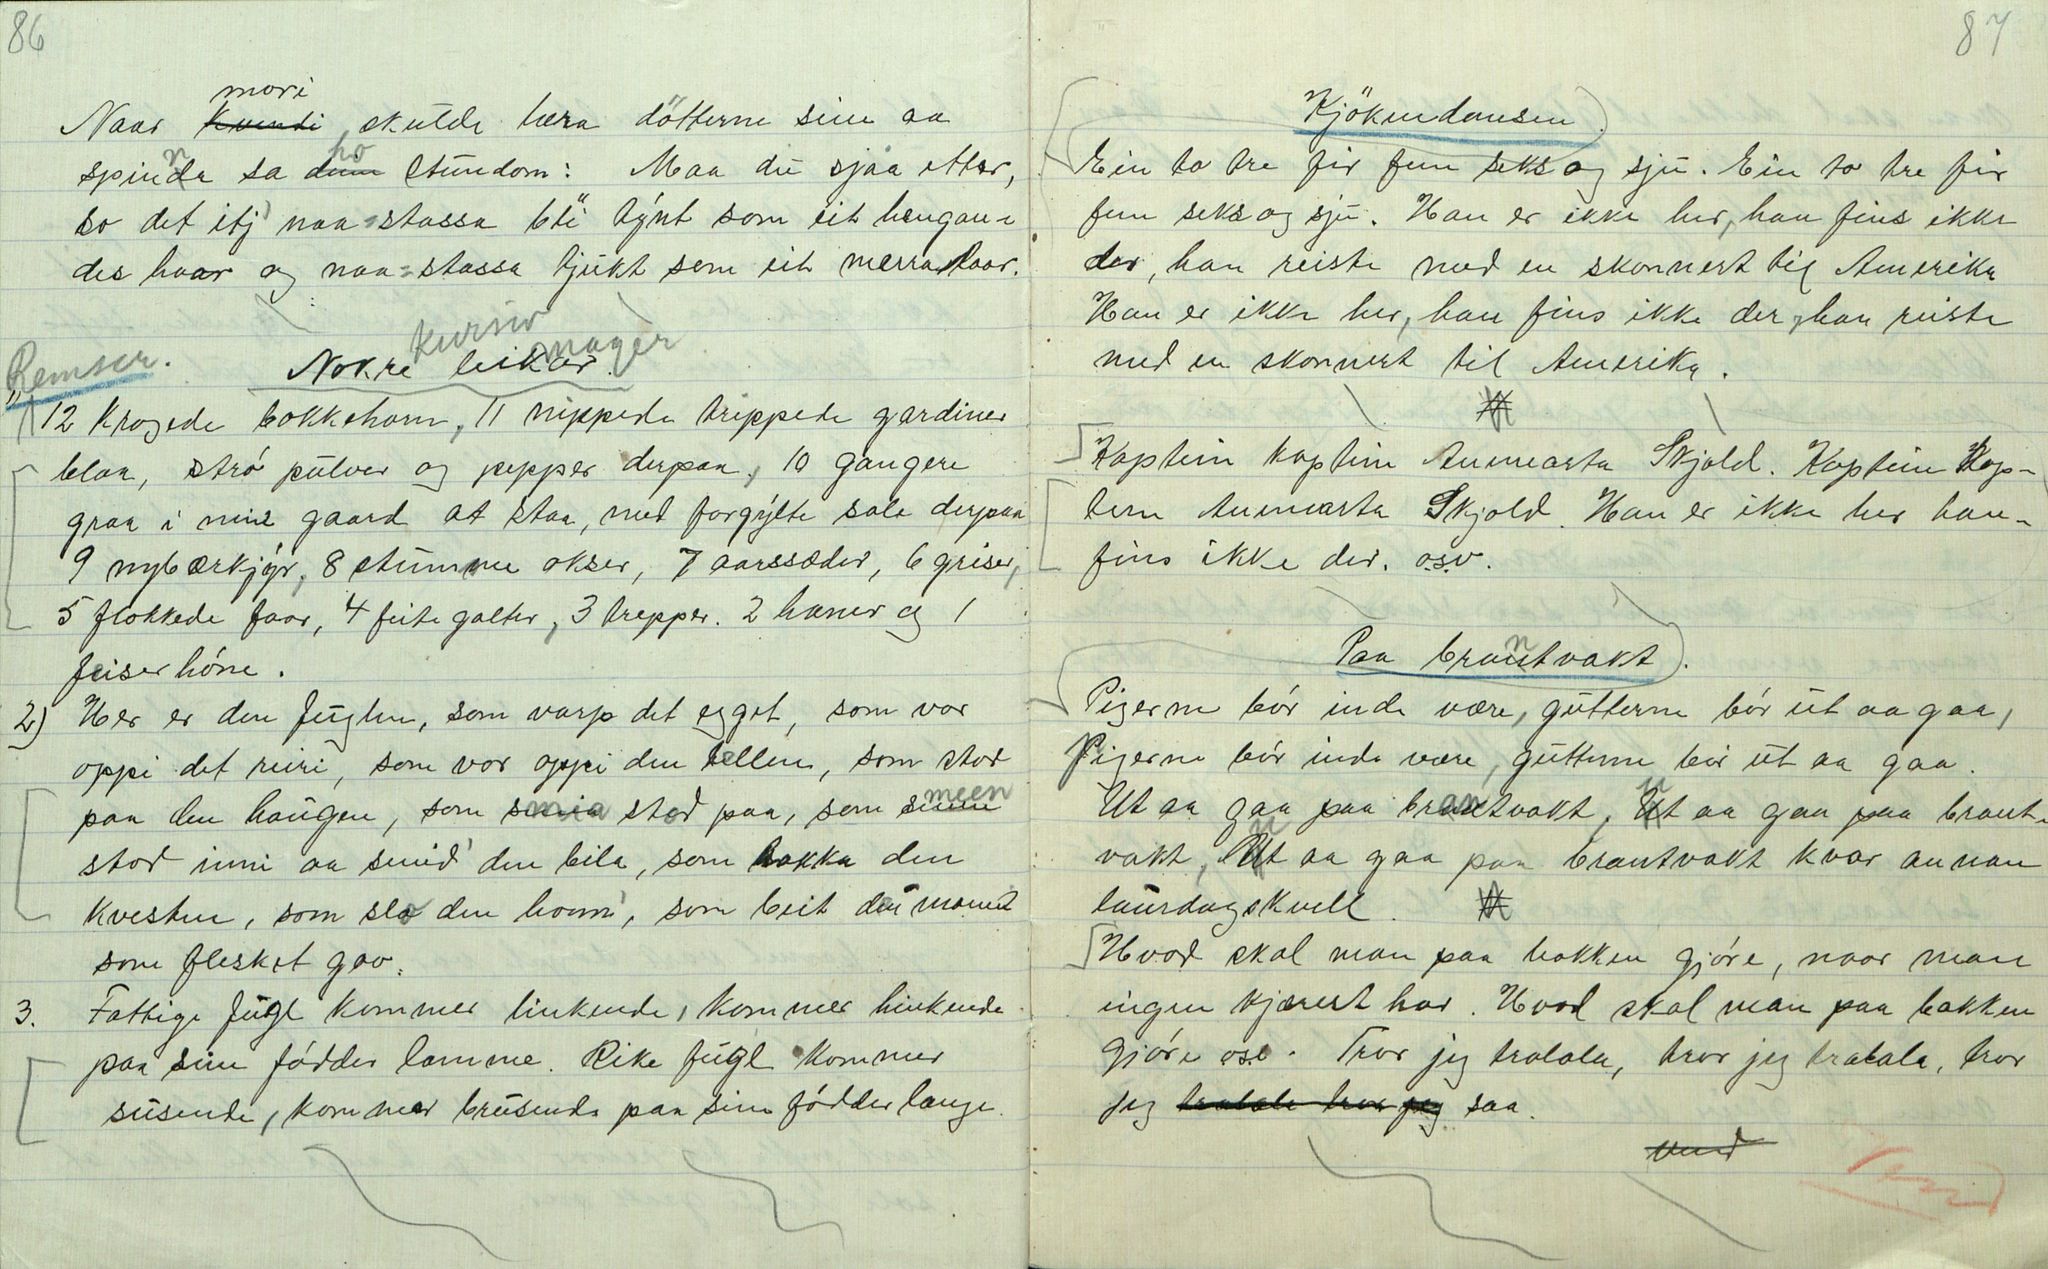 86
mori
Naar kvendi skulde læra döttern sine aa
spinna sa dum no stundom: Maa du sjaa etter,
so det itj naa-stassa bli tynt som eit hengan-
des haar og naa-stassa tjukt som eit merrataar.
kursiv mager
Remser.
Nokre leikar.
12 krogede bokkehorn, 11 nippede trippede gardiner
blaa, strö pulver og pepper derpaa, 10 gangere
graa i mine gaard at staa, med forgylte sale derpaa
9 nybærkjýr, 8 stumme okser, 7 aarssæder, 6 griser,
5 flokkede faar, 4 feite galter, 3 trepper. 2 haner og 1
feiser höne.
2) Her er den fuglen, som varp det egget, som var
oppi det reiri, som var oppi den tellen, som stod
paa den haugen, som smia stod paa, som smeen
stod inni aa smid' den bila, som hakka den
kvesten, som slo den horni, som beit den mannen
som flesket gav.
3. Fattige fugl kommer linkende, kommer hinkende
paa sine födder lamme. Rike fugl kommer
susende, kommer brusende paa sine födder lange.
87
Kjökendansen.
Ein to tre fir fem seks og sju. Ein to tre fir
fem seks og sju. Han er ikke her, han fins ikke
der, han reiste med en skonnert til Amerika
Han er ikke her, han fins ikke der, han reiste
med en skonnert til Amerika.
Kaptein kaptein Annmarta Skjold. Kaptein Kap-
tein Annmarta Skjold. Han er ikke her han-
fins ikke der. o.s.v.
Paa branntvakt.
Pigerne bör inde være, gutterne bör ut aa gaa,
Pigerne bör inde være, gutterne bör ut aa gaa.
Ut aa gaa paa brantvakt, ut aa gaa paa brant-
vakt, ut aa gaa paa brantvakt kvar annan
laurdagskvell.
Hvad skal man paa bakken gjöre, naar man
ingen kjærest har. Hvad skal man paa bakken
gjöre o.s.v. Tror jeg tralala, tror jeg tralala, tror
jeg tralala tror jeg saa.
Vend